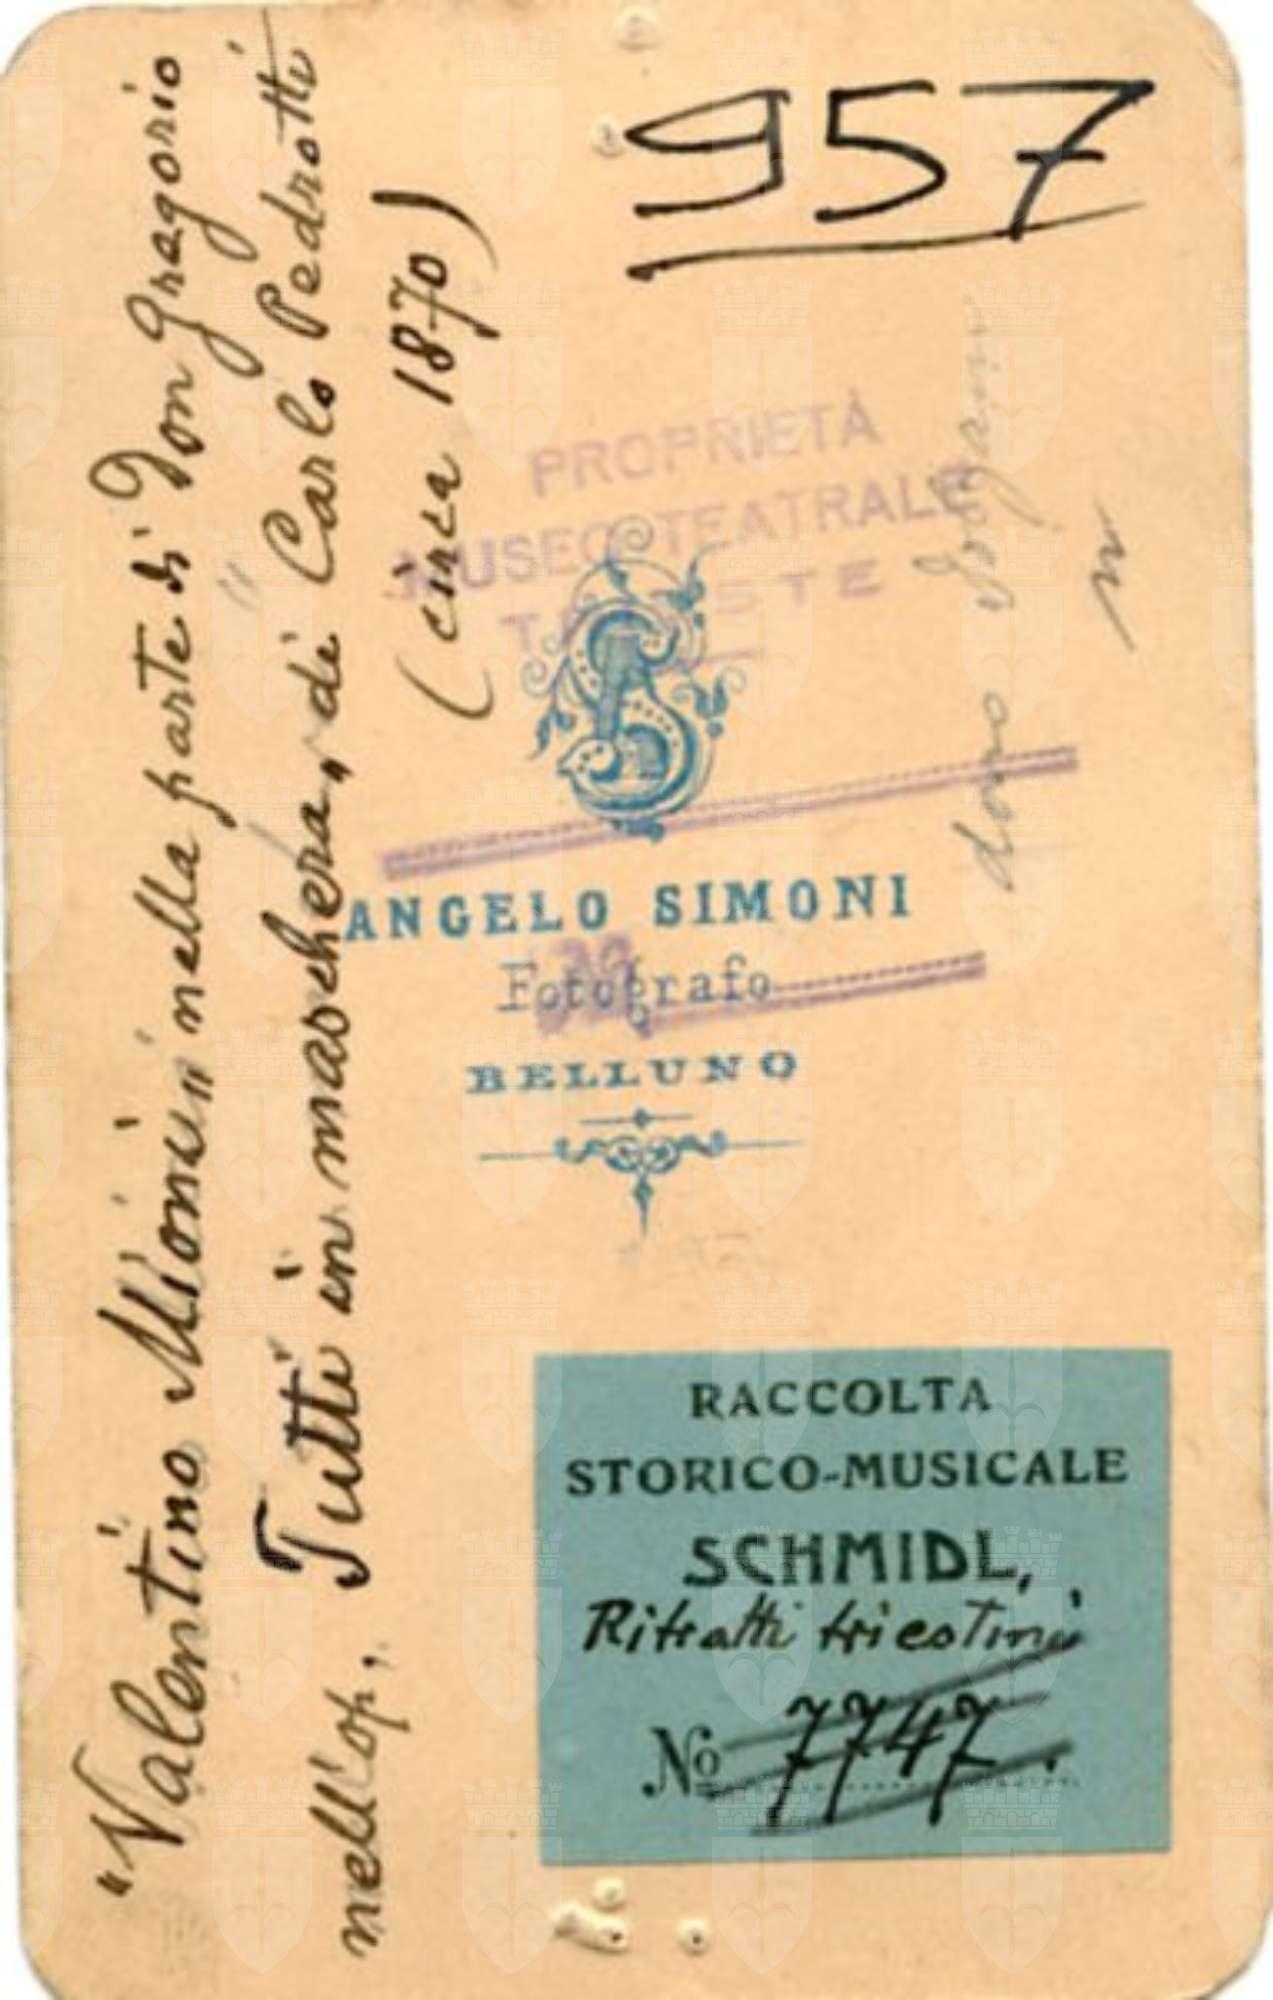 957
"Valentino Mionini nella parte di Don Gregorio
nell'op. "Tutti in maschera, di Carlo Pedrotti
(circa 1870)
PROPRIETÀ
MUSEO TEATRALE
TRIESTE
dono
ANGELO SIMONI
Fotografo
BELLUNO
RACCOLTA
STORICO-MUSICALE
SCHMIDL,
Ritratti triestini
No 7747.